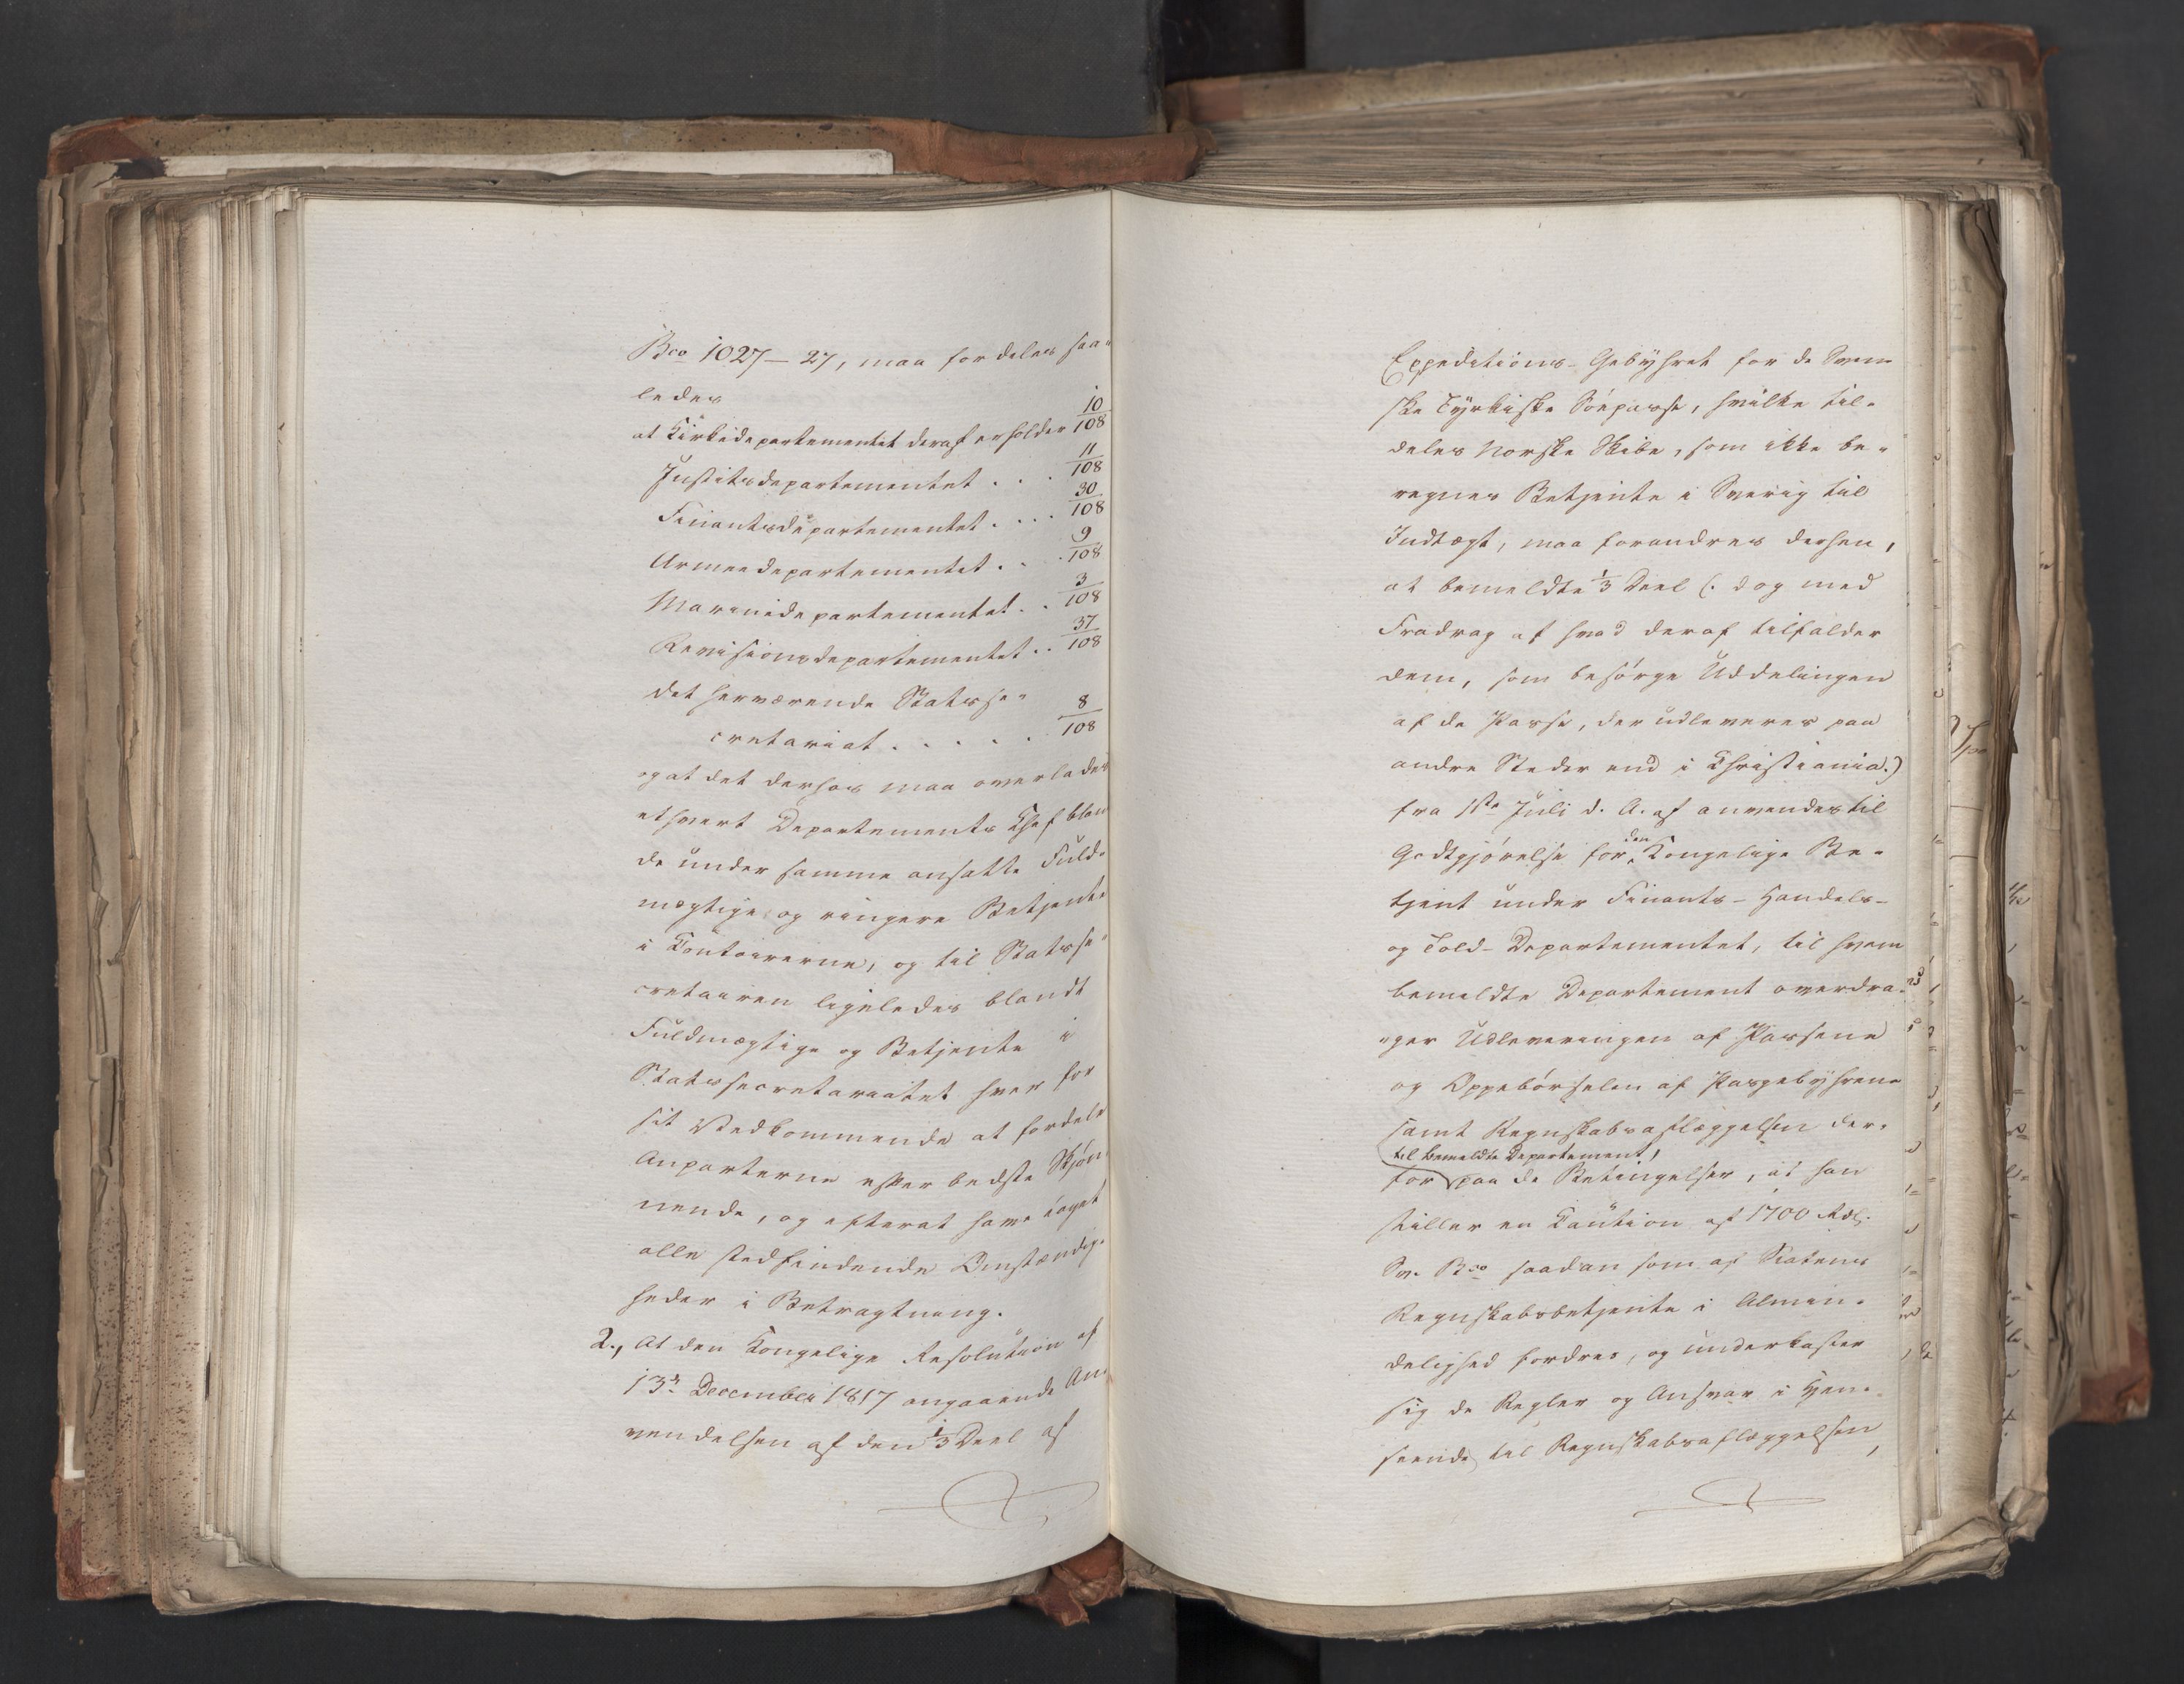 Bco 1027 - 27, maa fordeles saa-
ledes
at Kirkedepartementet deraf erholder 10/108
Justitsdepartementet . . . 11/108
Finantsdepartementet . . . 30/108
Armeedepartementet . . . 9/108
Marinedepartementet . . 3/108
Revisionsdepartementet . . 37/108
det herværende Statsse-
cretariat . . . . . 8/108
og at det derhos maa overlades
ethvert Departements Chef blan
de under samme ansatte Fuld-
mægtige og ringere Betjente
i Contoirerne, og til Statsse-
cretairen ligeledes blandt
Fuldmægtige og Betjente i
Statssecretariatet hver for
sit Vedkommende at fordele
Anparterne efter bedste Skjøn-
nende, og efterat have taget
alle stedfindende Omstændig-
heder i Betragtning.
2., At den Kongelige Resolution af
13de December 1817 angaaende An-
vendelsen af den 1/3 Deel af
Expeditions-Gebyhret for de Sven
ske Tyrkiske Söepasse, hvilke til-
deles Norske Skibe, som ikke be-
regnes Betjente i Sverig til
Indtægt, maa forandres derhen,
at bemeldte 1/3 Deel (: dog med
Fradrag af hvad deraf tilfalder
dem, som besørge Uddelingen
af de Passe, der udleveres paa
andre Steder end i Christiania.)
fra 1ste Juli d. A. af anvendes til
Godtgjørelse for den Kongelige Be-
tjent under Finants- Handels-
og Told-Departementet, til hvem
bemeldte Departement overdra-
-ger Udleveringen af Passene
og Oppebørselen af Pasgebyhrene
samt Regnskabsaflæggelsen der-
til bemeldte Departement,
for paa de Betingelser, at han
stiller en Caution af 1700 Rdl.
Sv. Bco saadan som af Statens
Regnskabsbetjente i Almin-
delighed fordres, og underkaster
sig de Regler og Ansvar i Hen-
seende til Regnskabsaflæggelsen,